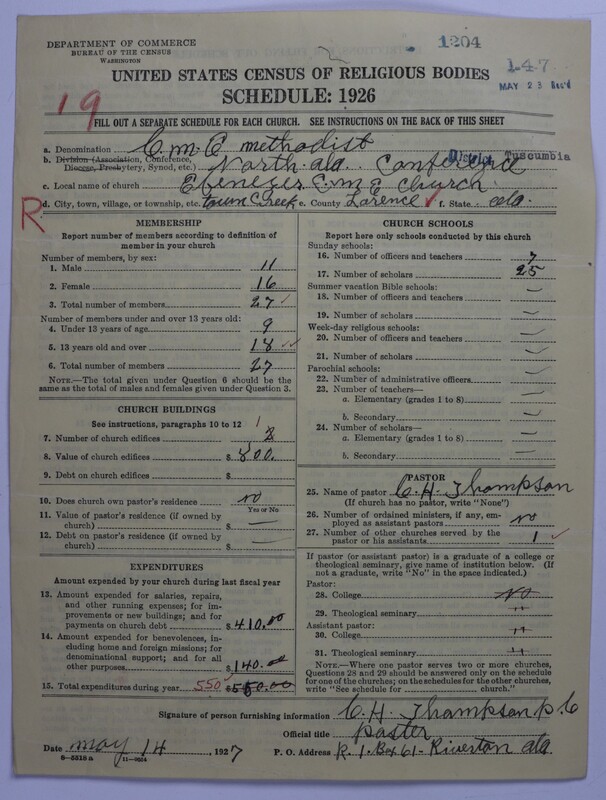 DEPARTMENT OF COMMERCE
BUREAU OF THE CENSUS
WASHINGTON
1204
147
MAY 23 Rec'd
UNITED STATES CENSUS OF RELIGIOUS BODIES
SCHEDULE: 1926
19
FILL OUT A SEPARATE SCHEDULE FOR EACH CHURCH. SEE INSTRUCTIONS ON THE BACK OF THIS SHEET
a. Denomination C. M. E methodist
b. Division (Association, Conference, Diocese, Presbytery, Synod, etc.) North ala. Conference District Tuscumbia
c. Local name of church Ebenezer C. M E Church
R
d. City, town, village, or township, etc. town Creek e. County Lorence f. State ala
MEMBERSHIP
Report number of members according to definition of member in your church
Number of members, by sex:
1. Male 11
2. Female 16
3. Total number of members 27
Number of members under and over 13 years old:
4. Under 13 years of age 9
5. 13 years old and over 18
6. Total number of members 27
NOTE.—The total given under Question 6 should be the same as the total of males and females given under Question 3.
CHURCH BUILDINGS
See instructions, paragraphs 10 to 12
7. Number of church edifices 1
8. Value of church edifices $ 800.
9. Debt on church edifices $
10. Does church own pastor's residence no
Yes or No
11. Value of pastor's residence (if owned by church) $ —
12. Debt on pastor's residence (if owned by church) $ —
EXPENDITURES
Amount expended by your church during last fiscal year
13. Amount expended for salaries, repairs, and other running expenses; for improvements or new buildings; and for payments on church debt $ 410.00
14. Amount expended for benevolences, including home and foreign missions; for denominational support; and for all other purposes $ 140.00
15. Total expenditures during year 550 $ 550.00
CHURCH SCHOOLS
Report here only schools conducted by this church
Sunday schools:
16. Number of officers and teachers 7
17. Number of scholars 25
Summer vacation Bible schools:
18. Number of officers and teachers —
19. Number of scholars —
Week-day religious schools:
20. Number of officers and teachers —
21. Number of scholars —
Parochial schools:
22. Number of administrative officers —
23. Number of teachers—
a. Elementary (grades 1 to 8) —
b. Secondary —
24. Number of scholars—
a. Elementary (grades 1 to 8) —
b. Secondary —
PASTOR
25. Name of pastor C. H. Thompson
(If church has no pastor, write "None")
26. Number of ordained ministers, if any, employed as assistant pastors no
27. Number of other churches served by the pastor or his assistants 1
If pastor (or assistant pastor) is a graduate of a college or theological seminary, give name of institution below. (If not a graduate, write "No" in the space indicated.)
Pastor:
28. College no
29. Theological seminary "
Assistant pastor:
30. College "
31. Theological seminary "
NOTE.—Where one pastor serves two or more churches, Questions 28 and 29 should be answered only on the schedule for one of the churches; on the schedules for the other churches, write "See schedule for church."
Signature of person furnishing information C. H. Thompson P. C
Official title paster
Date may 14, 1927
P. O. Address R. 1. Box 61- Riverton ala.
8—5318a 11—9054